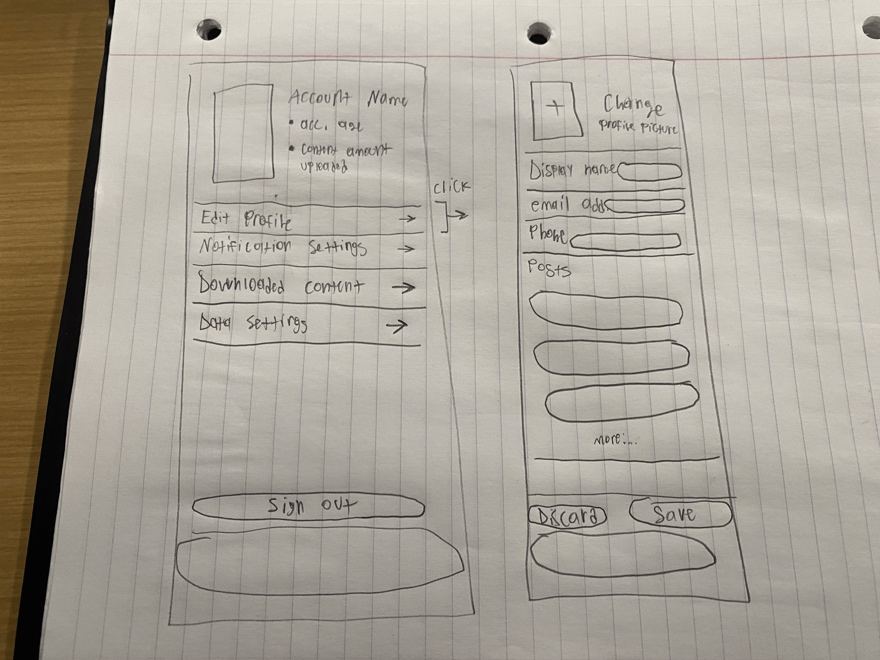 Account Name
• acc. age
• content amount
uploaded
Edit Profile →
Notification settings →
Downloaded content →
Data settings →
Sign out
click
→
+
Change
Profile Picture
Display name
email adds
Phone
Posts
more....
Discard
Save